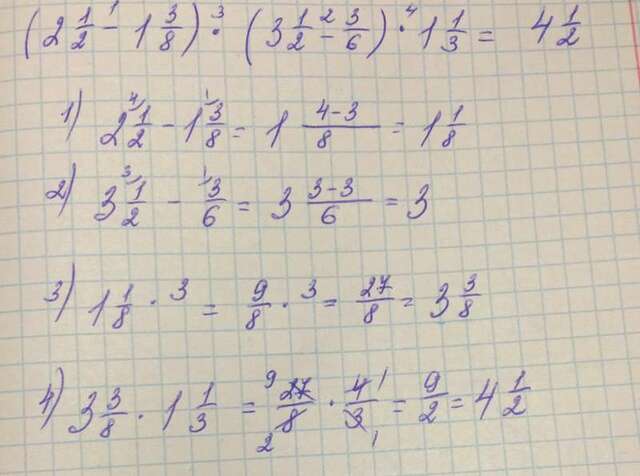 (2 1/2 -¹ 1 3/8) ·³ (3 1/2 -² 3/6) ·⁴ 1 1/3 = 4 1/2
1) 2 1⁴/2 - 1 3¹/8 = 1 (4-3)/8 = 1 1/8
2) 3 1³/2 - 3¹/6 = 3 (3-3)/6 = 3
3) 1 1/8 · 3 = 9/8 · 3 = 27/8 = 3 3/8
4) 3 3/8 · 1 1/3 = ⁹27/8₂ · 4¹/3₁ = 9/2 = 4 1/2